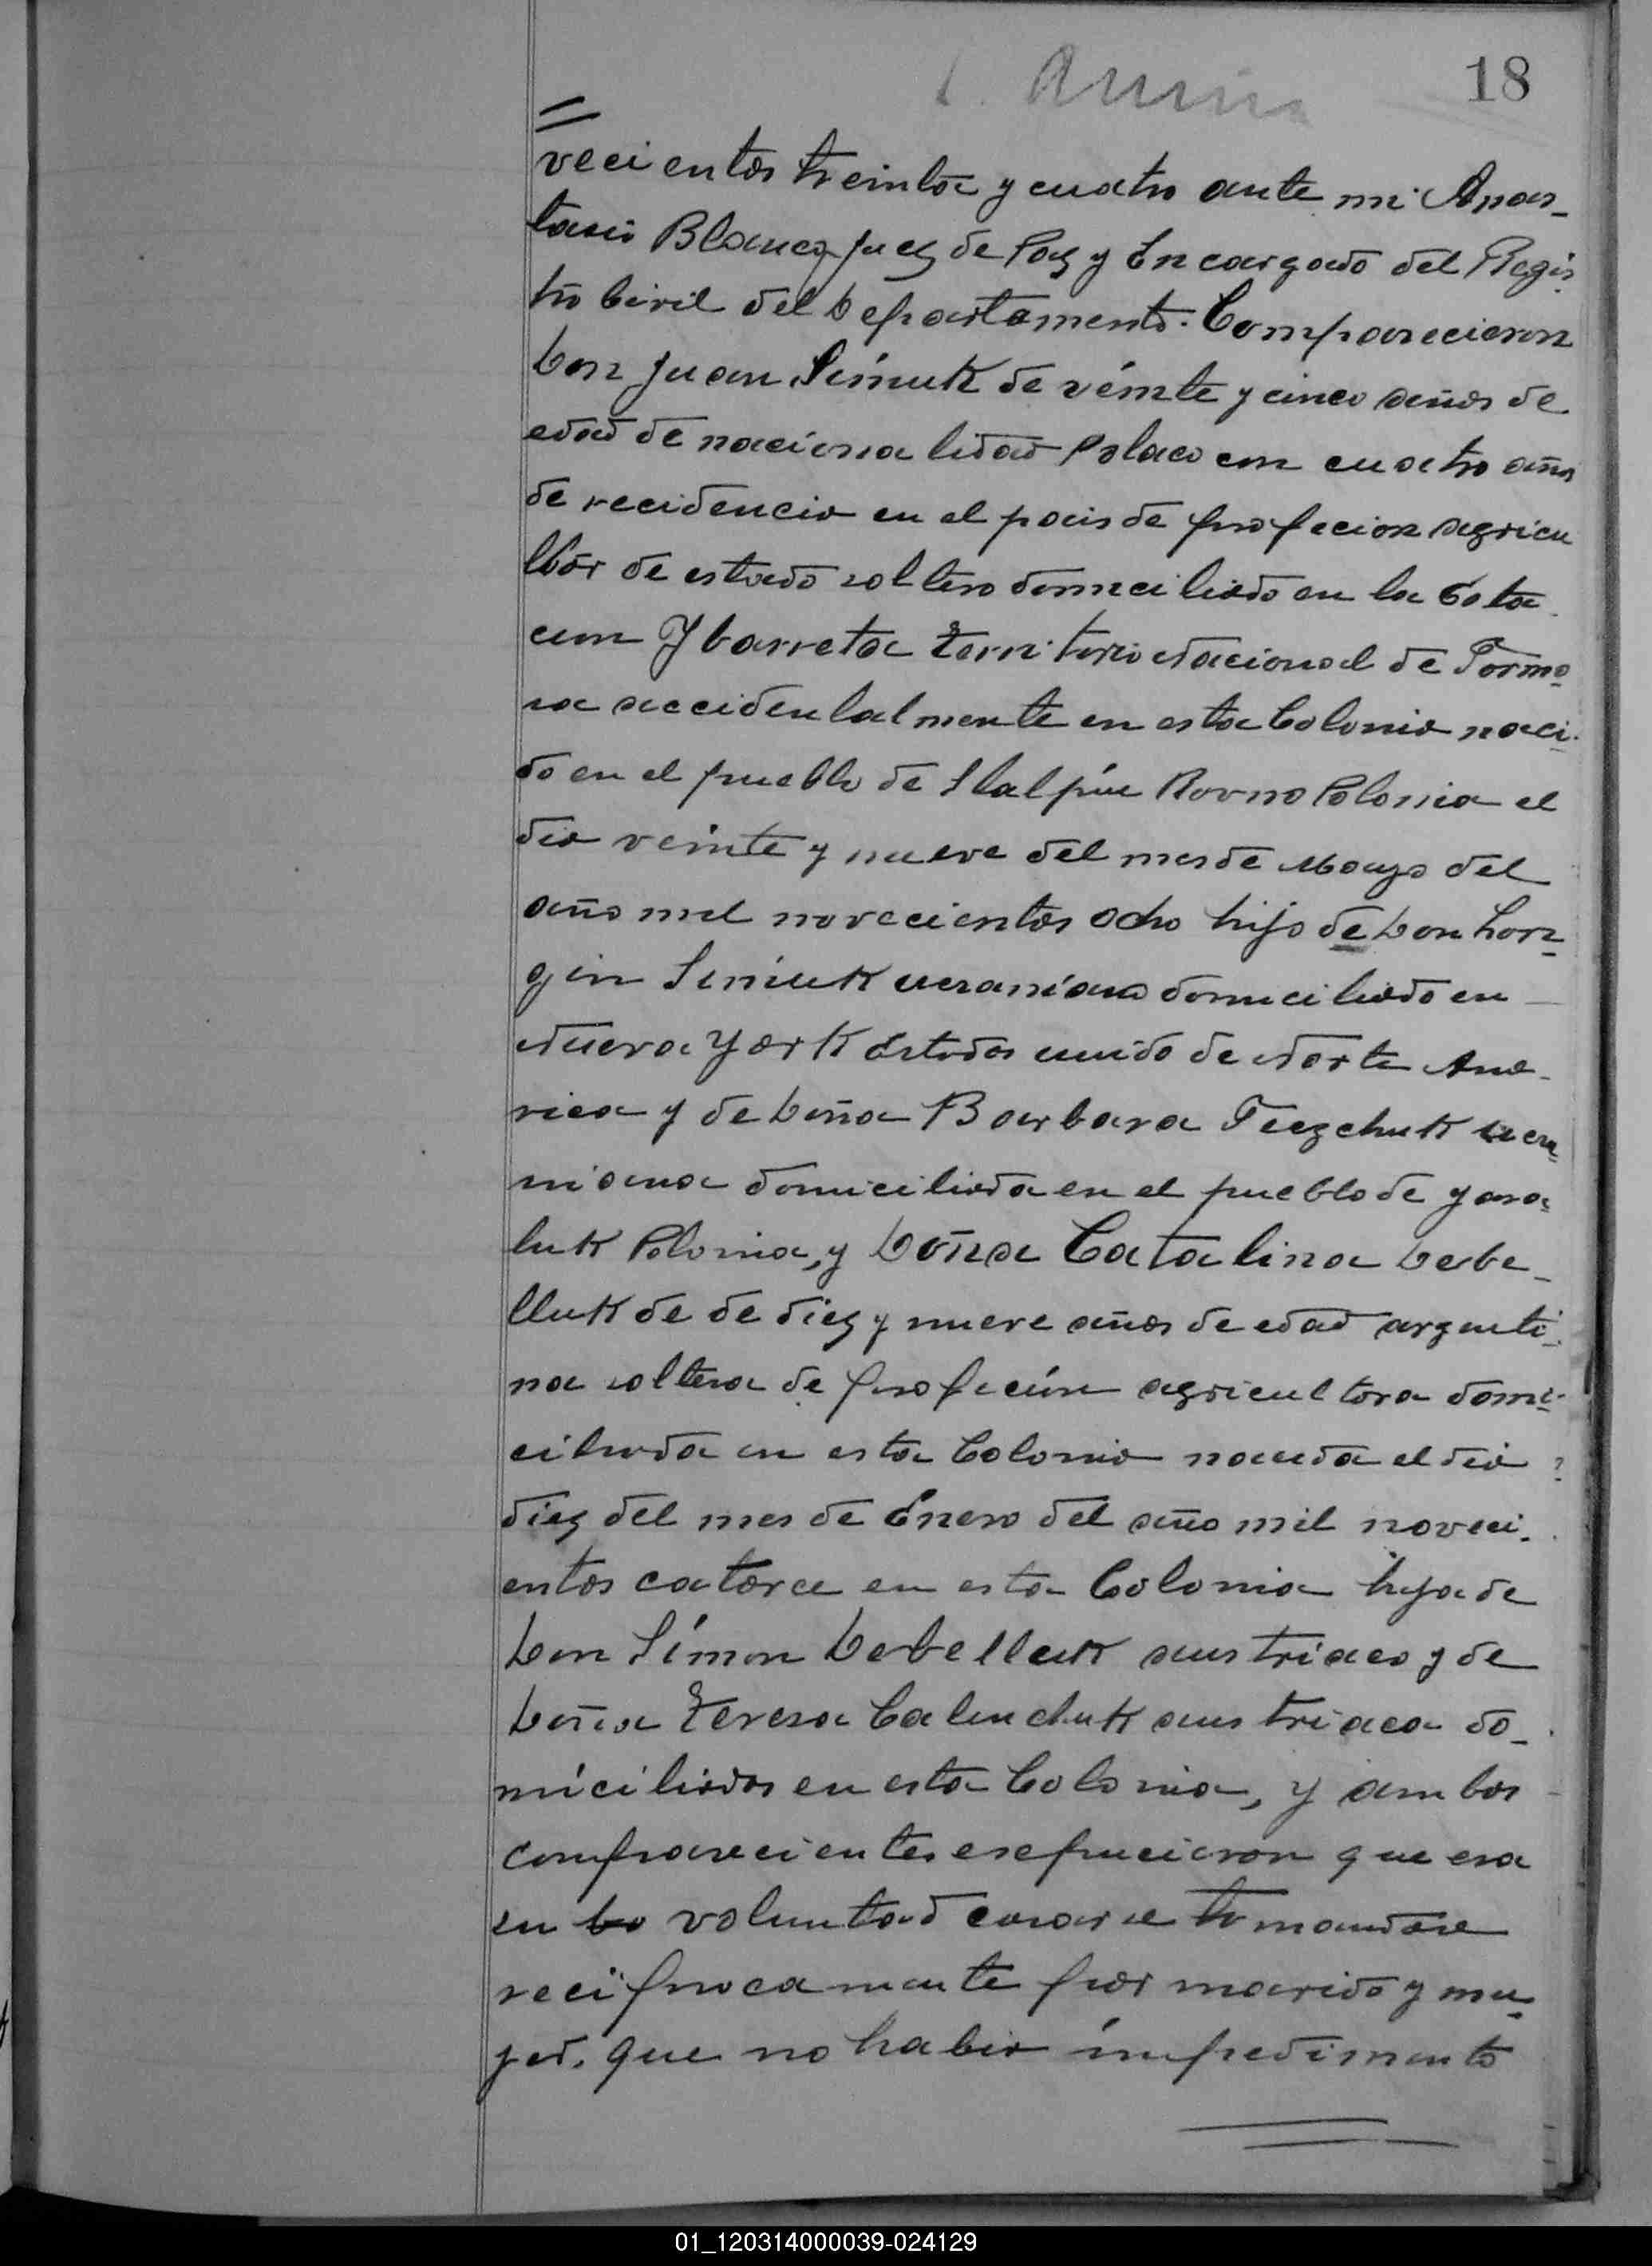 18
vecientos treinta y cuatro ante mi Anas_
tacio Blanco Juez de Paz y Encargado del Regis
tro Civil del Departamento. Comparecieron
Don Juan Simuk de veinte y cinco años de
edad de nacionalidad Polaco con cuatro años
de recidencia en el pais de profecion agricu
ltor de estado soltero domiciliado en la Esta
cion Ybarreta Territorio Nacional de Formo
sa accidentalmente en esta Colonia naci
do en el pueblo de Rovno Polonia el
dia veinte y nueve del mes de Mayo del
año mil novecientos ocho hijo de Don
Simuk ucraniano domiciliado en
Nueva York Estados unido de Norte Ame_
rica y de Doña Barbara ucra
niana domiciliada en el pueblo de
Polonia, y Doña Catalina Debe_
lluk de de diez y nueve años de edad argenti
na soltera de profecion agricultora domi
ciliada en esta Colonia nacida el dia
diez del mes de Enero del año mil noveci_
entos catorce en esta Colonia hija de
Don Simon Debelluk austriaco y de
Doña Teresa Calenchuk austriaca do_
miciliados en esta Colonia, y ambos
comparecientes esepucieron que era
su voluntad casarse tomandose
reciprocamente por marido y mu_
jer. que no habia impedimento
01_120314000039-024129